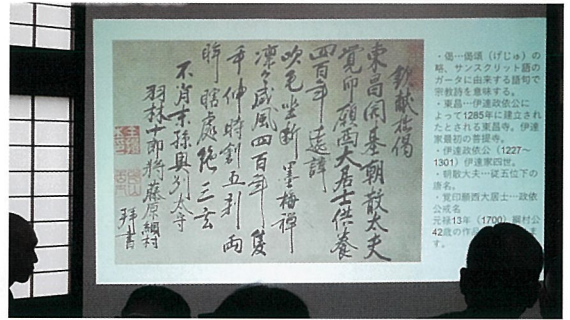 献拙偈
東昌開基朝散太夫
覚印願西大居士供養
四百年遠諱
吹毛坐断墨梅禅
凛々威風四百年隻
手 時 五 両
眸瞎處絶三玄
不肖末孫奥刕太守
羽林中郎将藤原綱村
拝書
・偈…偈頌（げじゅ）の
略、サンスクリット語の
ガータに由来する語句で
宗教詩を意味する。
・東昌…伊達政依公に
よって1285年に建立され
たとされる東昌寺。伊達
家最初の菩提寺。
・伊達政依公（1227～
1301）伊達家四世。
・朝散大夫…従五位下の
唐名。
・覚印願西大居士…政依
公戒名
元禄13年（1700）綱村公
42歳の作品
す。